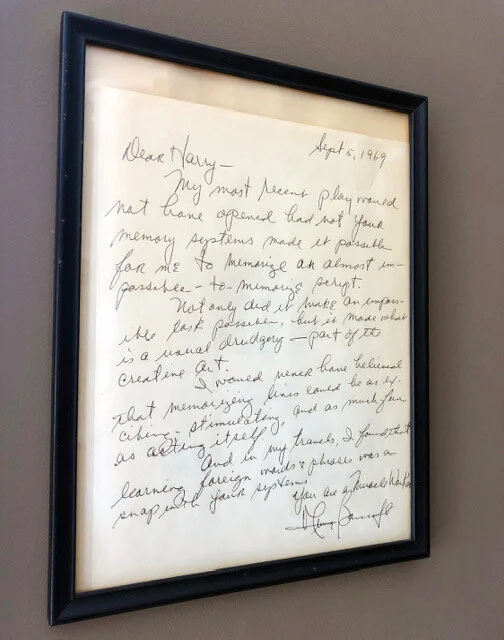 Sept 5, 1969
Dear Harry—
My most recent play would
not have opened had not your
memory systems made it possible
for me to memorize an almost im-
possible-to-memorize script.
Not only did it make an impos-
ible task possible, but it made what
is a usual drudgery—part of the
creative art.
I would never have believed
that memorizing lines could be as ex-
citing, stimulating, and as much fun
as acting itself
And in my travels, I found that
learning foreign words & phrases was a
snap with your systems
You are a Miracle Worker
Anne Bancroft